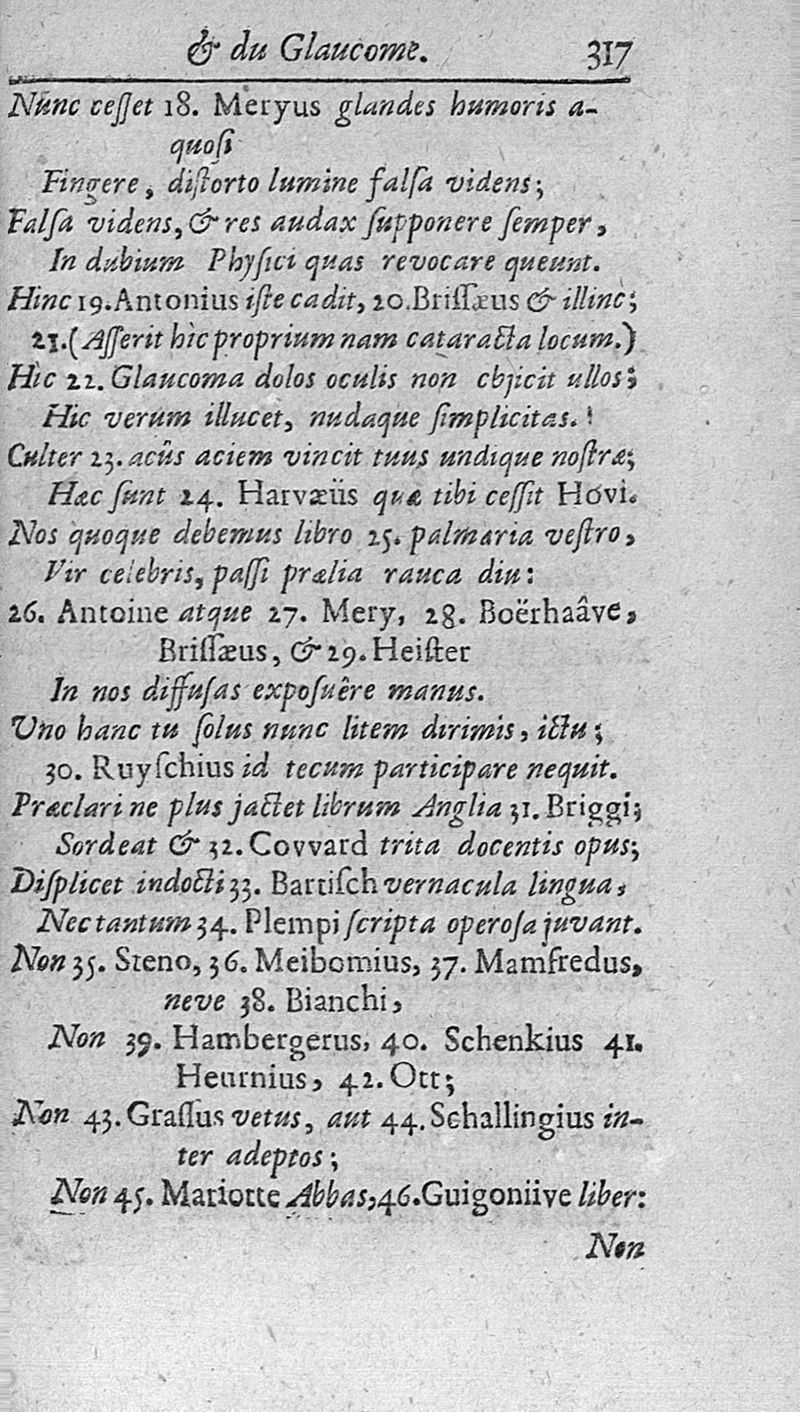 & du Glaucome. 317
Nunc ceſſet 18. Meryus glandes humoris a-
quoſi
Fingere, diſtorto lumine falſa videns;
Falſa videns, & res audax ſupponere ſemper,
In dubium Phyſici quas revocare queunt.
Hinc 19. Antonius iſte cadit, 20. Briſſæus & illinc;
21. (Aſſerit hìc proprium nam cataracta locum.)
Hìc 22. Glaucoma dolos oculis non objicit ullos;
Hic verum illucet, nudaque ſimplicitas.
Culter 23. acûs aciem vincit tuus undique noſtræ;
Hæc ſunt 24. Harvæiis quæ tibi ceſſit Hovi.
Nos quoque debemus libro 25. palmaria veſtro,
Vir celebris, paſſi prælia rauca diu:
26. Antoine atque 27. Mery, 28. Boërhaâve,
Briſſæus, & 29. Heiſter
In nos diffuſas expoſuêre manus.
Uno hanc tu ſolus nunc litem dirimis, ictu;
30. Ruyſchius id tecum participare nequit.
Præclari ne plus jactet librum Anglia 31. Briggi;
Sordeat & 32. Covvard trita docentis opus;
Diſplicet indocti 33. Bartiſch vernacula lingua,
Nec tantum 34. Plempi ſcripta operoſa juvant.
Non 35. Steno, 36. Meibomius, 37. Mamfredus,
neve 38. Bianchi,
Non 39. Hambergerus, 40. Schenkius 41.
Heurnius, 42. Ott;
Non 43. Graſſus vetus, aut 44. Schallingius in-
ter adeptos;
Non 45. Mariotte Abbas, 46. Guigoniive liber:
Non